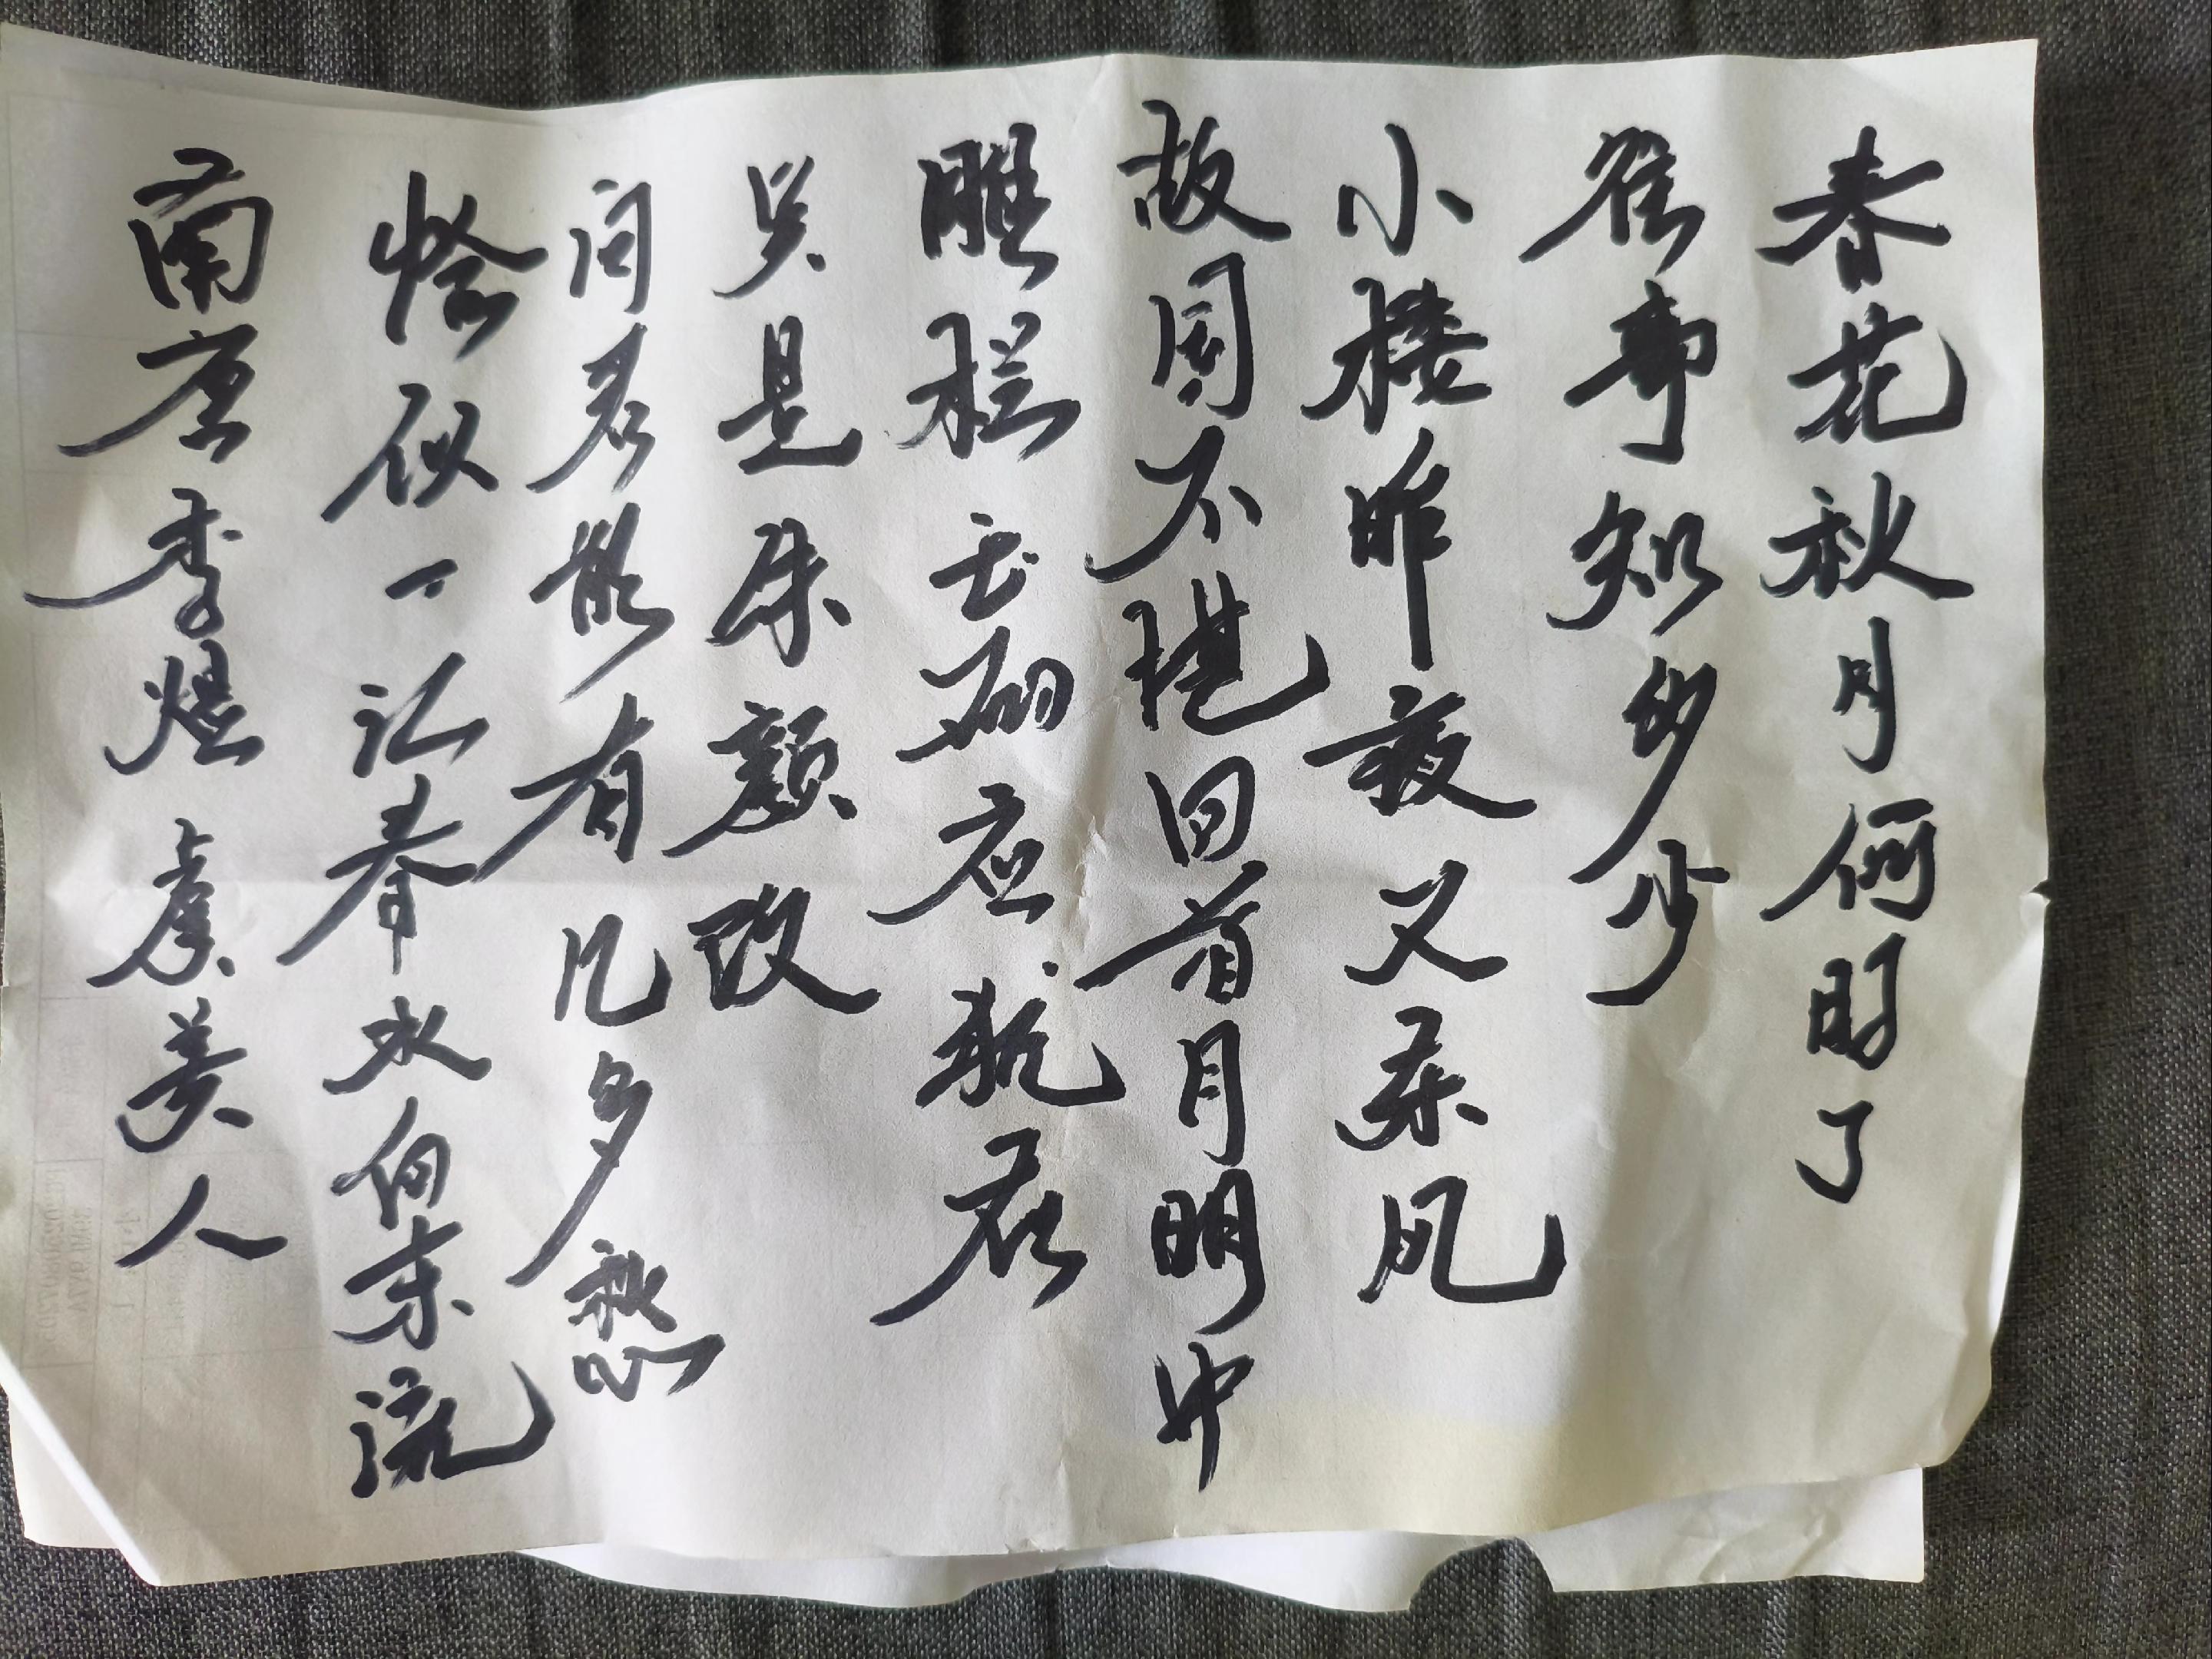 春花秋月何时了
往事知多少
小楼昨夜又东风
故国不堪回首月明中
雕栏玉砌应犹在
只是朱颜改
问君能有几多愁
恰似一江春水向东流
南唐李煜 虞美人